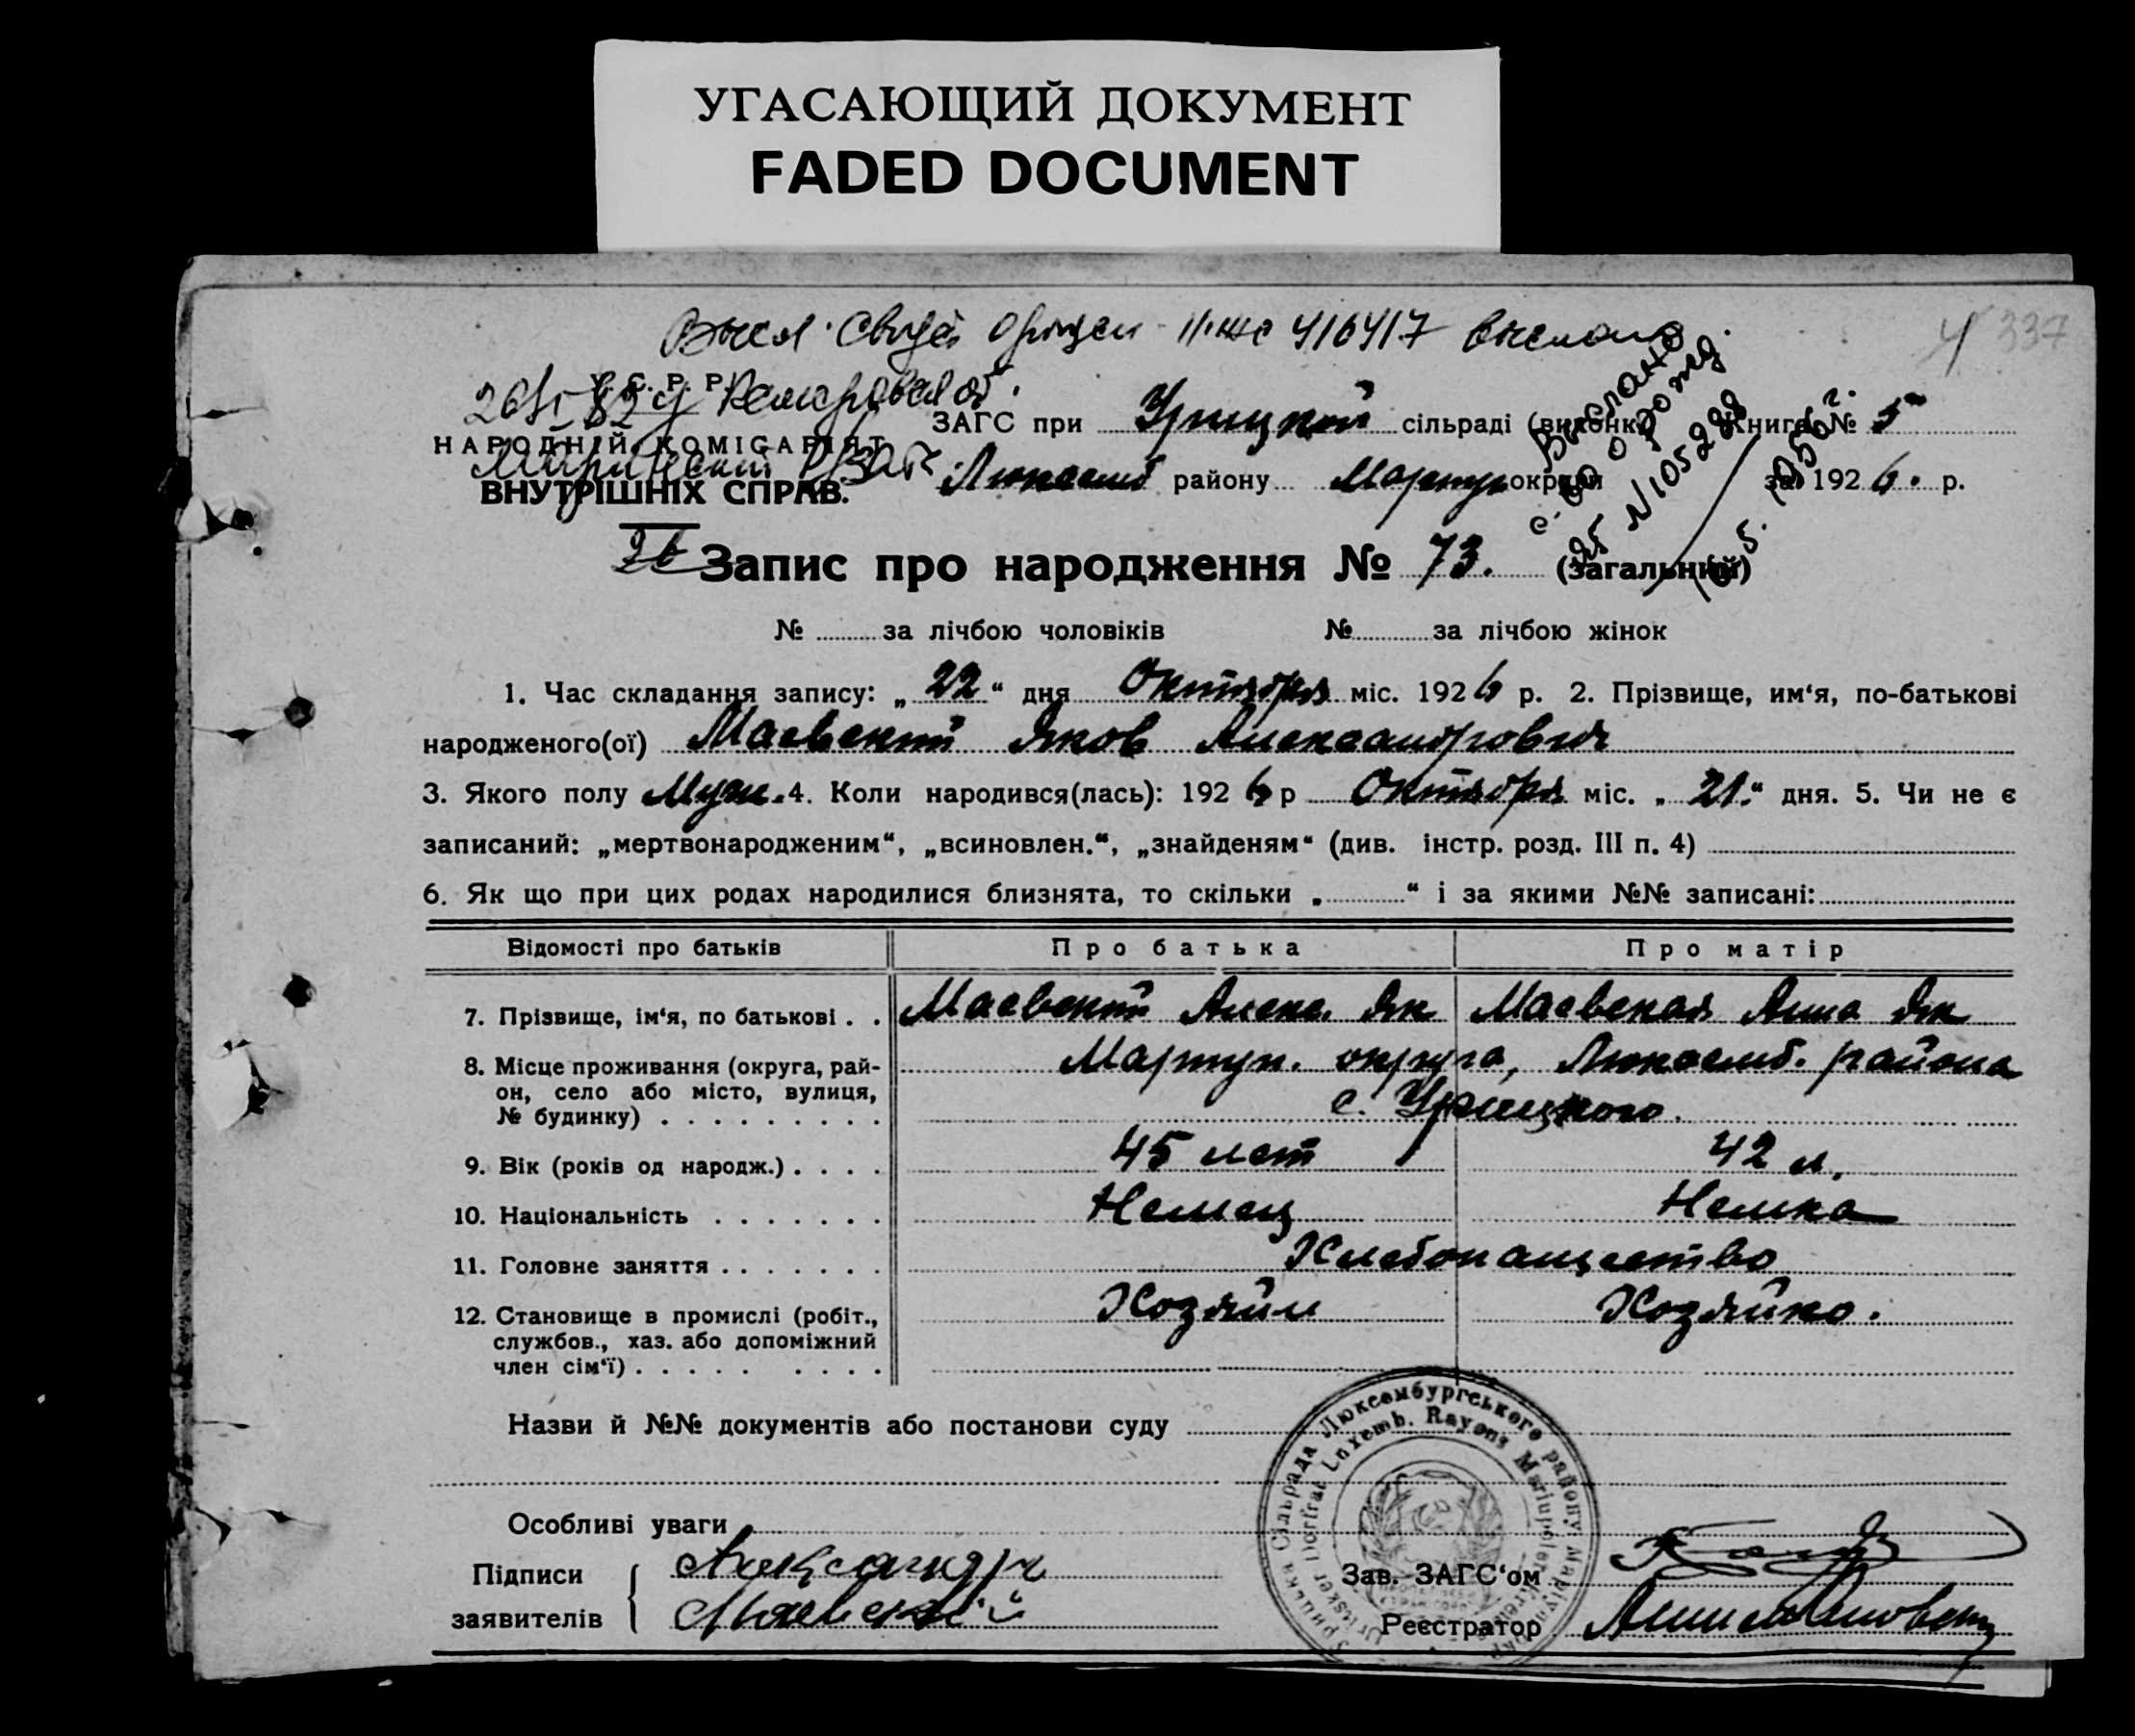 УГАСАЮЩИЙ ДОКУМЕНТ
FADED DOCUMENT
337
У. С. Р. Р.
НАРОДНІЙ КОМІСАРІЯТ
ВНУТРІШНІХ СПРАВ.
ЗАГС при Урицкой сільраді Книга № 5
Люксемб району Мариуп округи за 1926. р.
Запис про народження № 73. (загальний)
№ за лічбою чоловіків № за лічбою жінок
1. Час складання запису: „22“ дня Октября міс. 1926 р. 2. Прізвище, им‘я, по-батькові
народженого(ої) Маевский Яков Александрович
3. Якого полу Муж. 4. Коли народився(лась): 1926 р Октября міс. „21.“ дня. 5. Чи не є
записаний: „мертвонародженим“, „всиновлен.“, „знайденям“ (див. інстр. розд. III п. 4)
6. Як що при цих родах народилися близнята, то скільки „ “ і за якими №№ записані:
Відомості про батьків Про батька Про матір
7. Прізвище, ім‘я, по батькові . . Маевский Алекс. Як Маевская Анна Як
8. Місце проживання (округа, рай- Мариуп. округа, Люксемб. района
он, село або місто, вулиця, с. Урицкого.
№ будинку)
9. Вік (років од народж.) 45 лет 42 л.
10. Національність Немец Немка
11. Головне заняття Хлебопашество
12. Становище в промислі (робіт., Хозяин Хозяйка.
службов., хаз. або допоміжний
член сім‘ї)
Назви й №№ документів або постанови суду
Особливі уваги
Підписи Александр
заявителів Маевский
Зав. ЗАГС‘ом
Реєстратор
Урицька Сільрада Люксембургського району
Luxemb. Rayons Mariupoler